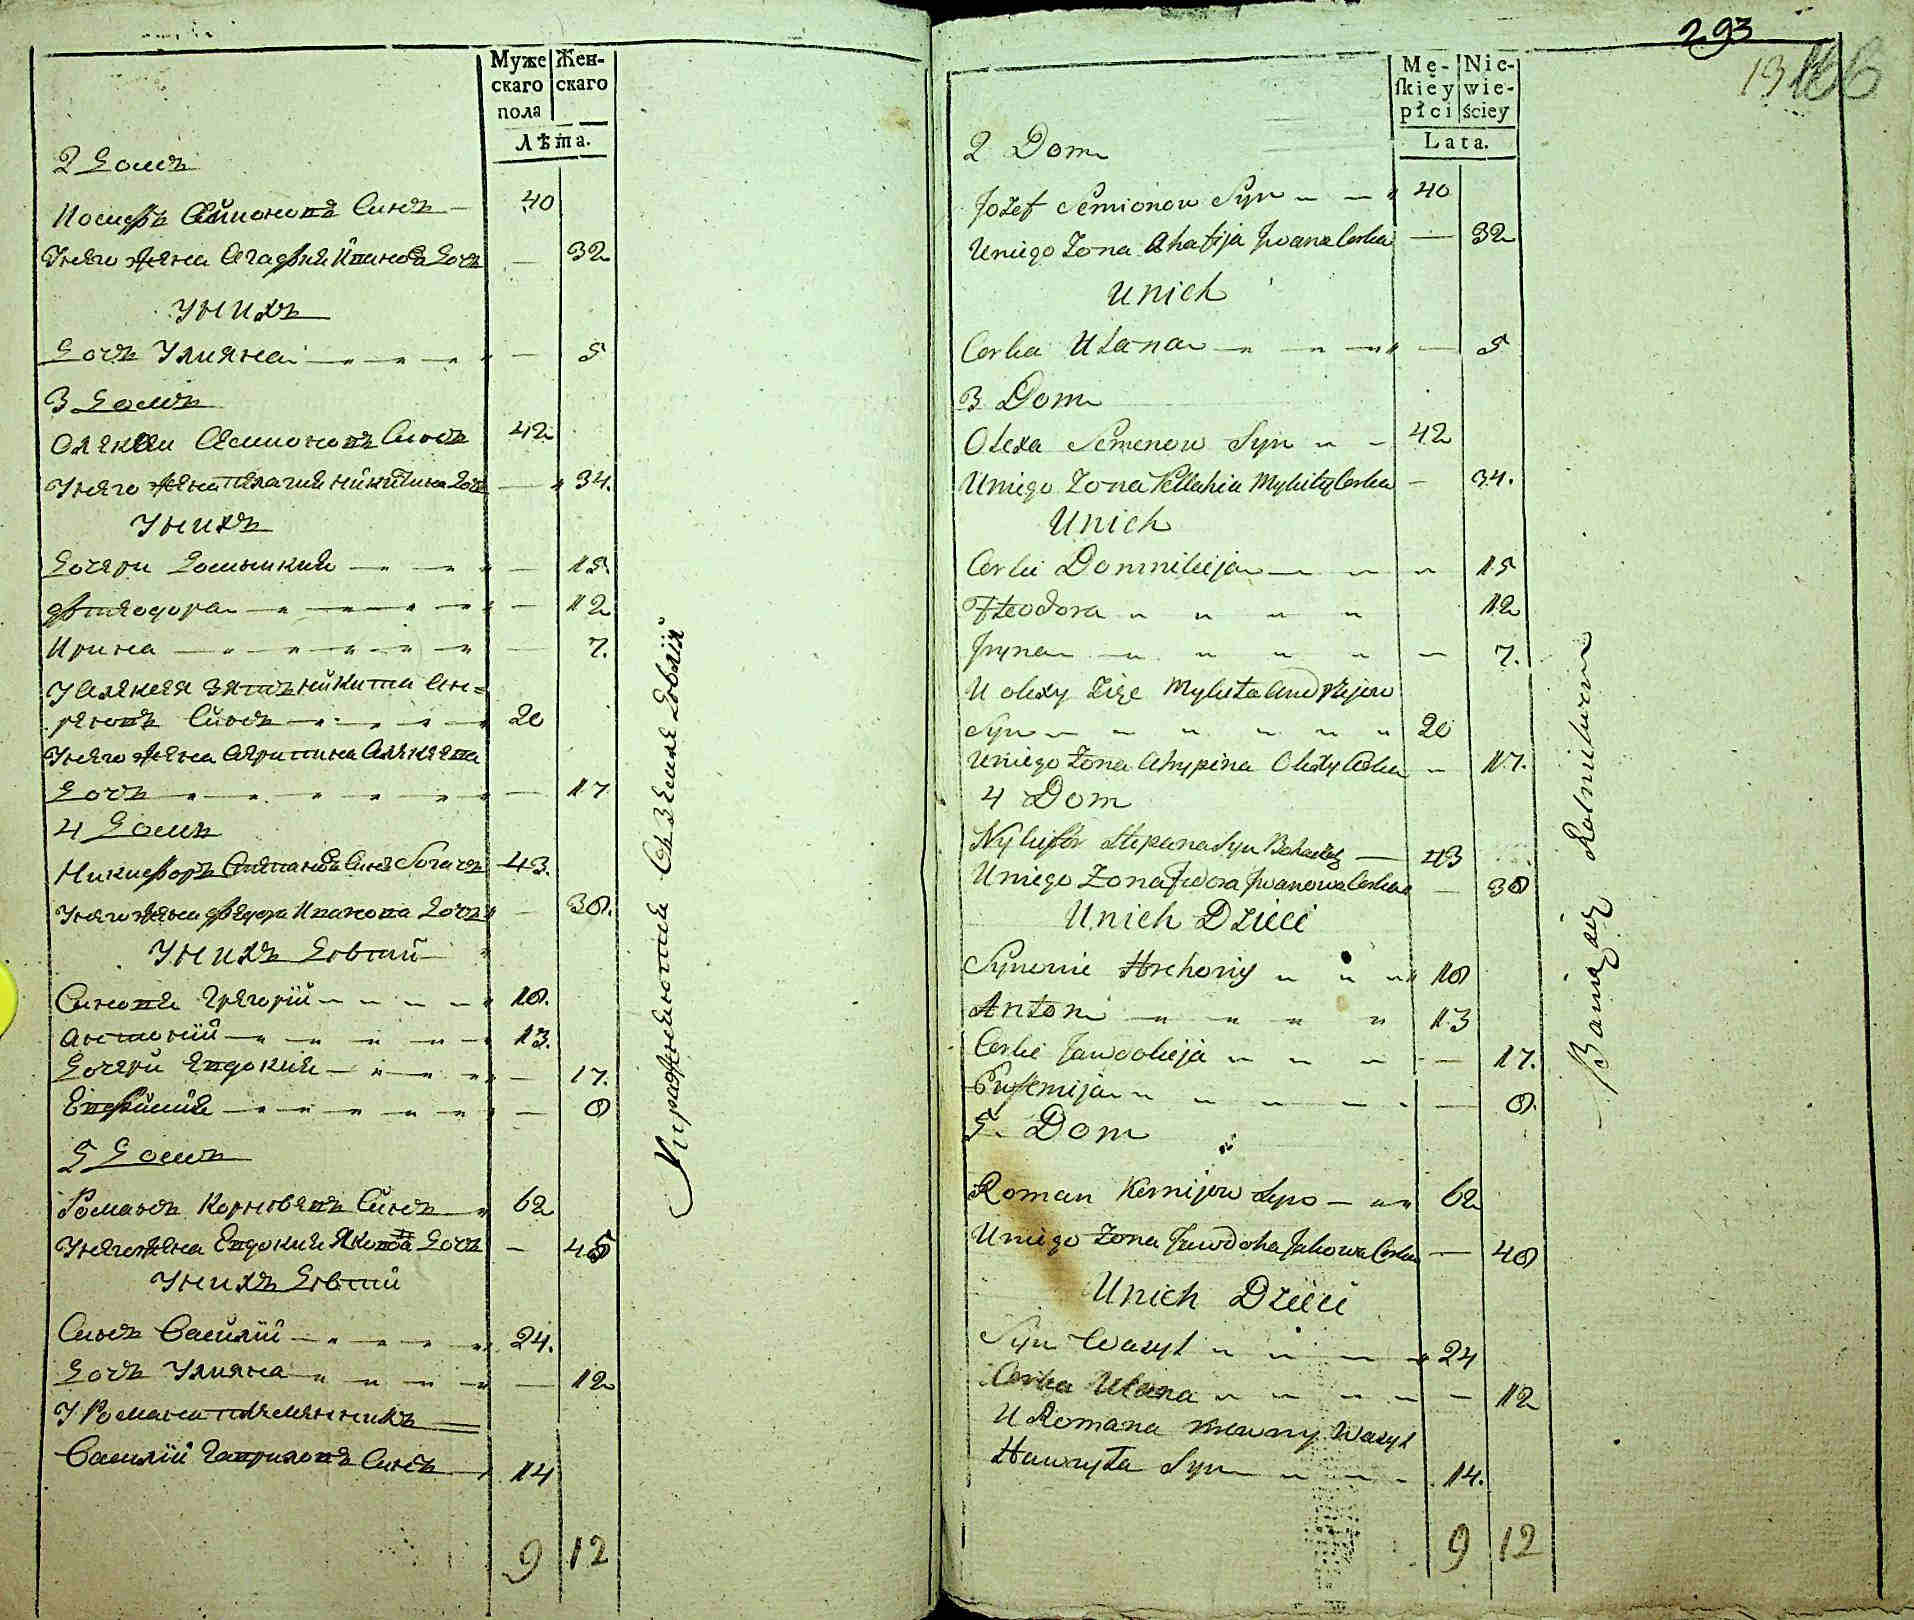 Муже скаго пола
Жен- скаго
Лѣта.
2 Домъ
Иосифъ Симионовъ Синъ — 40
Унего жена Агафия Иванова Дочь — 32
Унихъ
Дочь Улияна — 5
3 Домъ
Олекси Семионовъ Синъ 42
Унего жена Пелагия Никитина Дочь — 34.
Унихъ
Дочери Домникия — 15.
Фтеодора — 12
Ирина — 7.
У Алексея зять Никита Ан=
реювъ Синъ — 20
Унего жена Агрипина Алексеева
Дочь — 17
4 Домъ
Никифоръ Степановъ Синъ Богачъ 43.
Унего жена Федора Иванова Дочь — 38.
Унихъ Дѣтий
Синовя Григорий — 18.
Антоний — 13.
Дочери Евдокия — 17.
Евфимия — 8
5 Домъ
Романъ Корнѣевъ Синъ — 62
Унего жена Евдокия Якова Дочь — 48
Унихъ Дѣтий
Синъ Василий — 24.
Дочь Улияна — 12
У Романа племянникъ
Василий Гавриловъ Синъ — 14
9 12
Упражняются Въ Земле Делии
293
13 166
Mę- skiey płci
Nie- wie- ściey
Lata.
2 Dom
Jozef Semionow Syn — 40
Uniego Zona Ahafija Jwana Corka — 32
Unich
Corka Ulana — 5
3 Dom
Olexa Semenow Syn — 42
Uniego Zona Pellahia Mykity Corka — 34.
Unich
Corki Domnikija — 15
Fteodora 12
Jryna — 7.
U olexy Zięc Mykita Andrzejow
Syn — 20
Uniego Zona Ahrypina Olexy Corka — 17.
4 Dom
Nykyfor Stepana Syn Bohacz — 43
Uniego Zona Fwdora Jwanowa Corka — 38
Unich Dzieci
Synowie Hrehoriy 18
Antoni — 13
Corki Jawdokija — 17.
Eufemija — 8.
5. Dom
Roman Kornijow Syn — 62
Uniego Zona Jawdoha Jakowa Corka — 48
Unich Dzieci
Syn Wasyl 24
Corka Ulana — 12
U Romana Krewny Wasyl
Hawryła Syn 14.
9 12
Bawią się Rolnictwem